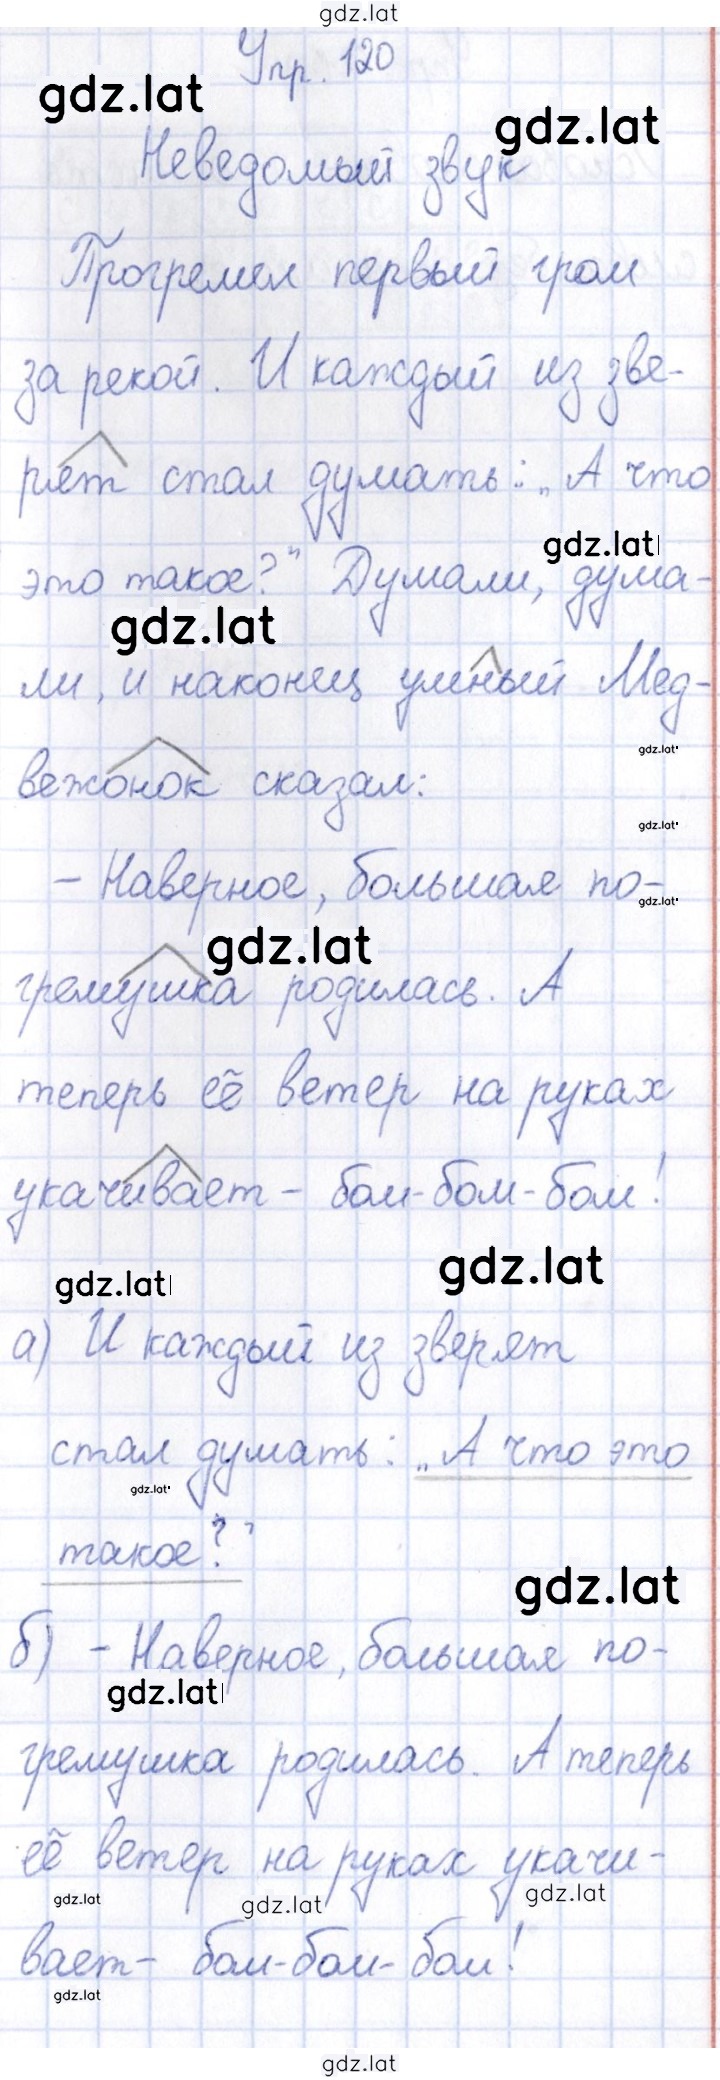 gdz.lat
Упр. 120
gdz.lat
gdz.lat
Неведомый звук
Прогремел первый гром
за рекой. И каждый из зве-
рят стал думать: „А что
gdz.lat
это такое?" Думали, дума-
gdz.lat
ли, и наконец умный Мед-
gdz.lat
вежонок сказал:
gdz.lat
- Наверное, большая по-
gdz.lat
gdz.lat
гремушка родилась. А
теперь её ветер на руках
укачивает - бом-бом-бом!
gdz.lat
gdz.lat
а) И каждый из зверят
стал думать: „А что это
gdz.lat
такое?"
gdz.lat
б) - Наверное, большая по-
gdz.lat
гремушка родилась. А теперь
её ветер на руках укачи-
gdz.lat gdz.lat gdz.lat
вает - бом-бом-бом!
gdz.lat
gdz.lat